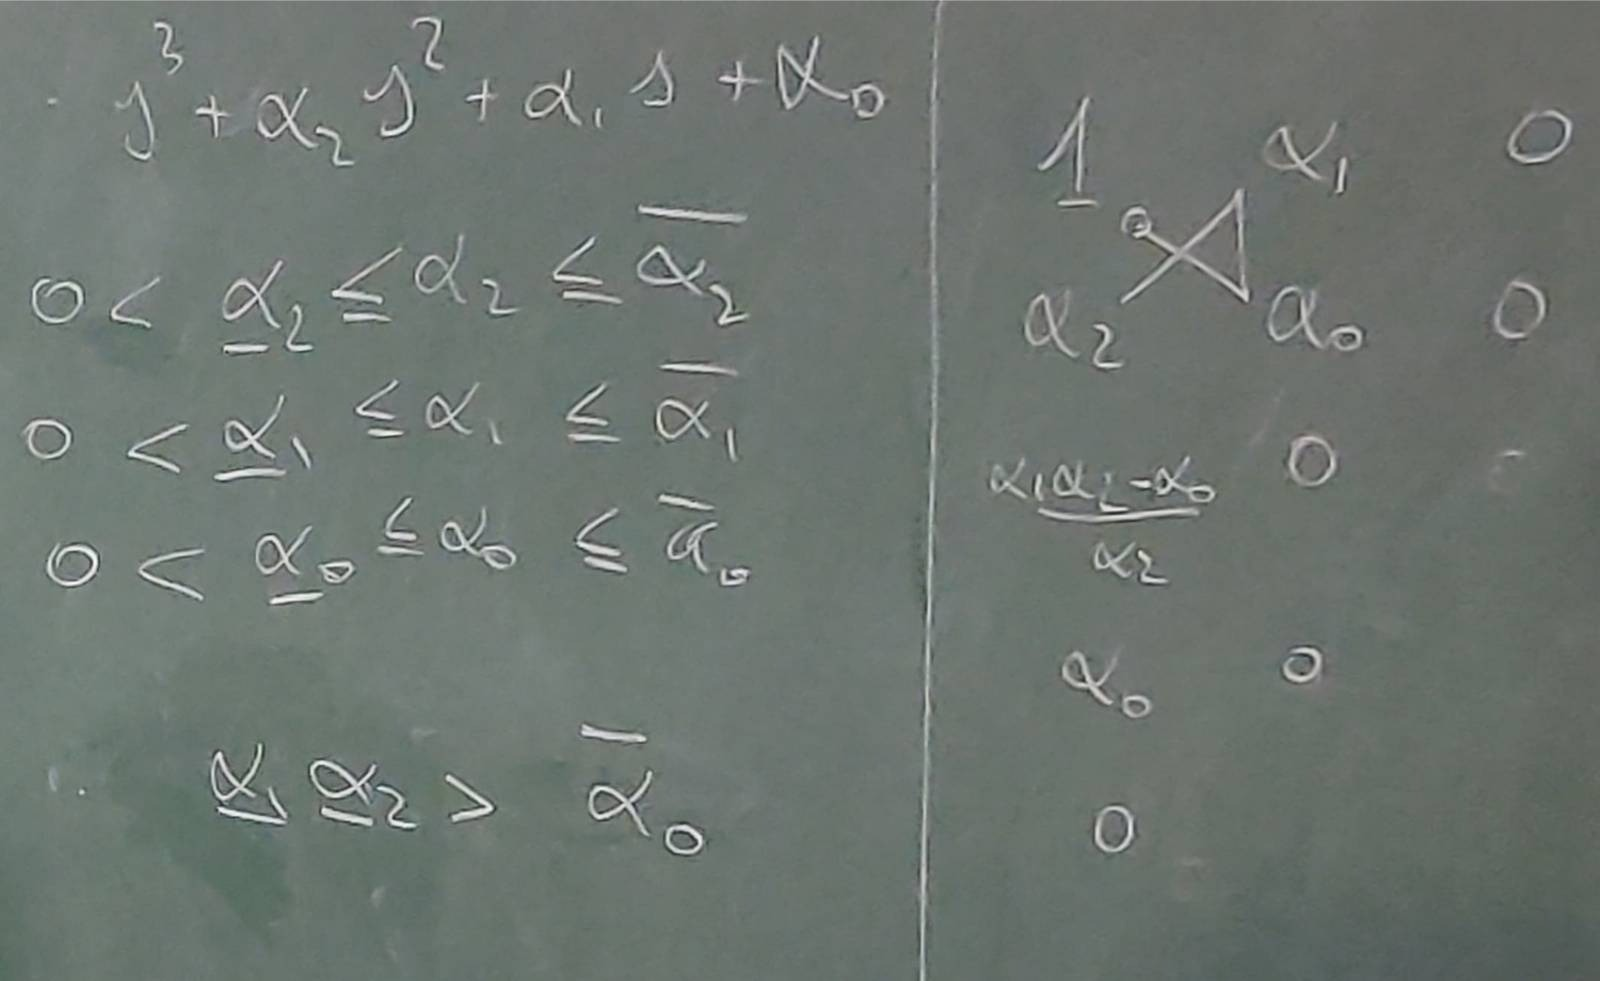 s³ + α₂ s² + α₁ s + α₀
0 < α̲₂ ≤ α₂ ≤ α̅₂
0 < α̲₁ ≤ α₁ ≤ α̅₁
0 < α̲₀ ≤ α₀ ≤ α̅₀
α̲₁ α̲₂ > α̅₀
1 α₁ 0
α₂ α₀ 0
α₁α₂-α₀ 0
α₂
α₀ 0
0